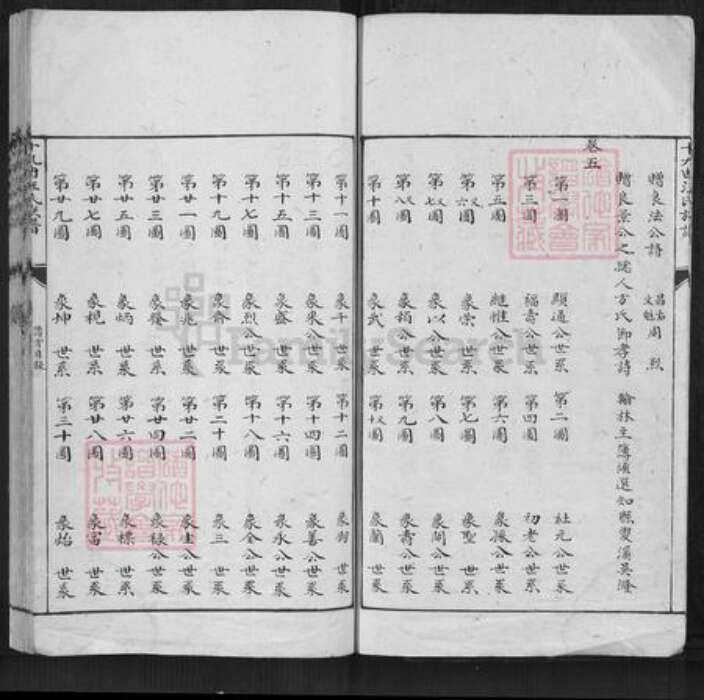 贈良法公詩 昌右文魁 周烈
贈良景公之
人方氏節孝詩 翰林主簿
選知縣
溪吳
卷五
第一圖 顯通公世系 第二圖 社元公世系
第三圖 福壽公世系 第四圖 初老公世系
第五圖 維惟公世系 第六圖 象振公世系
第六圖 象榮公世系 第七圖 象聖世系
第七圖 象以公世系 第八圖 象問公世系
第八圖 象楫公世系 第九圖 象壽公世系
第十圖 象武世系 第十圖 象蘭世系
第十一圖 象千世系 第十二圖 世系
第十三圖 象來公世系 第十四圖 象善公世系
第十五圖 象盛世系 第十六圖 象永公世系
第十七圖 象烈公世系 第十八圖 象全公世系
第十九圖 象齋世系 第二十圖 象三世系
第廿一圖 象兆世系 第廿二圖 公世系
第廿三圖 象發世系 第廿四圖 象祿公世系
第廿五圖 象炳世系 第廿六圖 象標世系
第廿七圖 象規世系 第廿八圖 象富世系
第廿九圖 象坤世系 第三十圖 象始世系
譜首目錄
FamilySearch